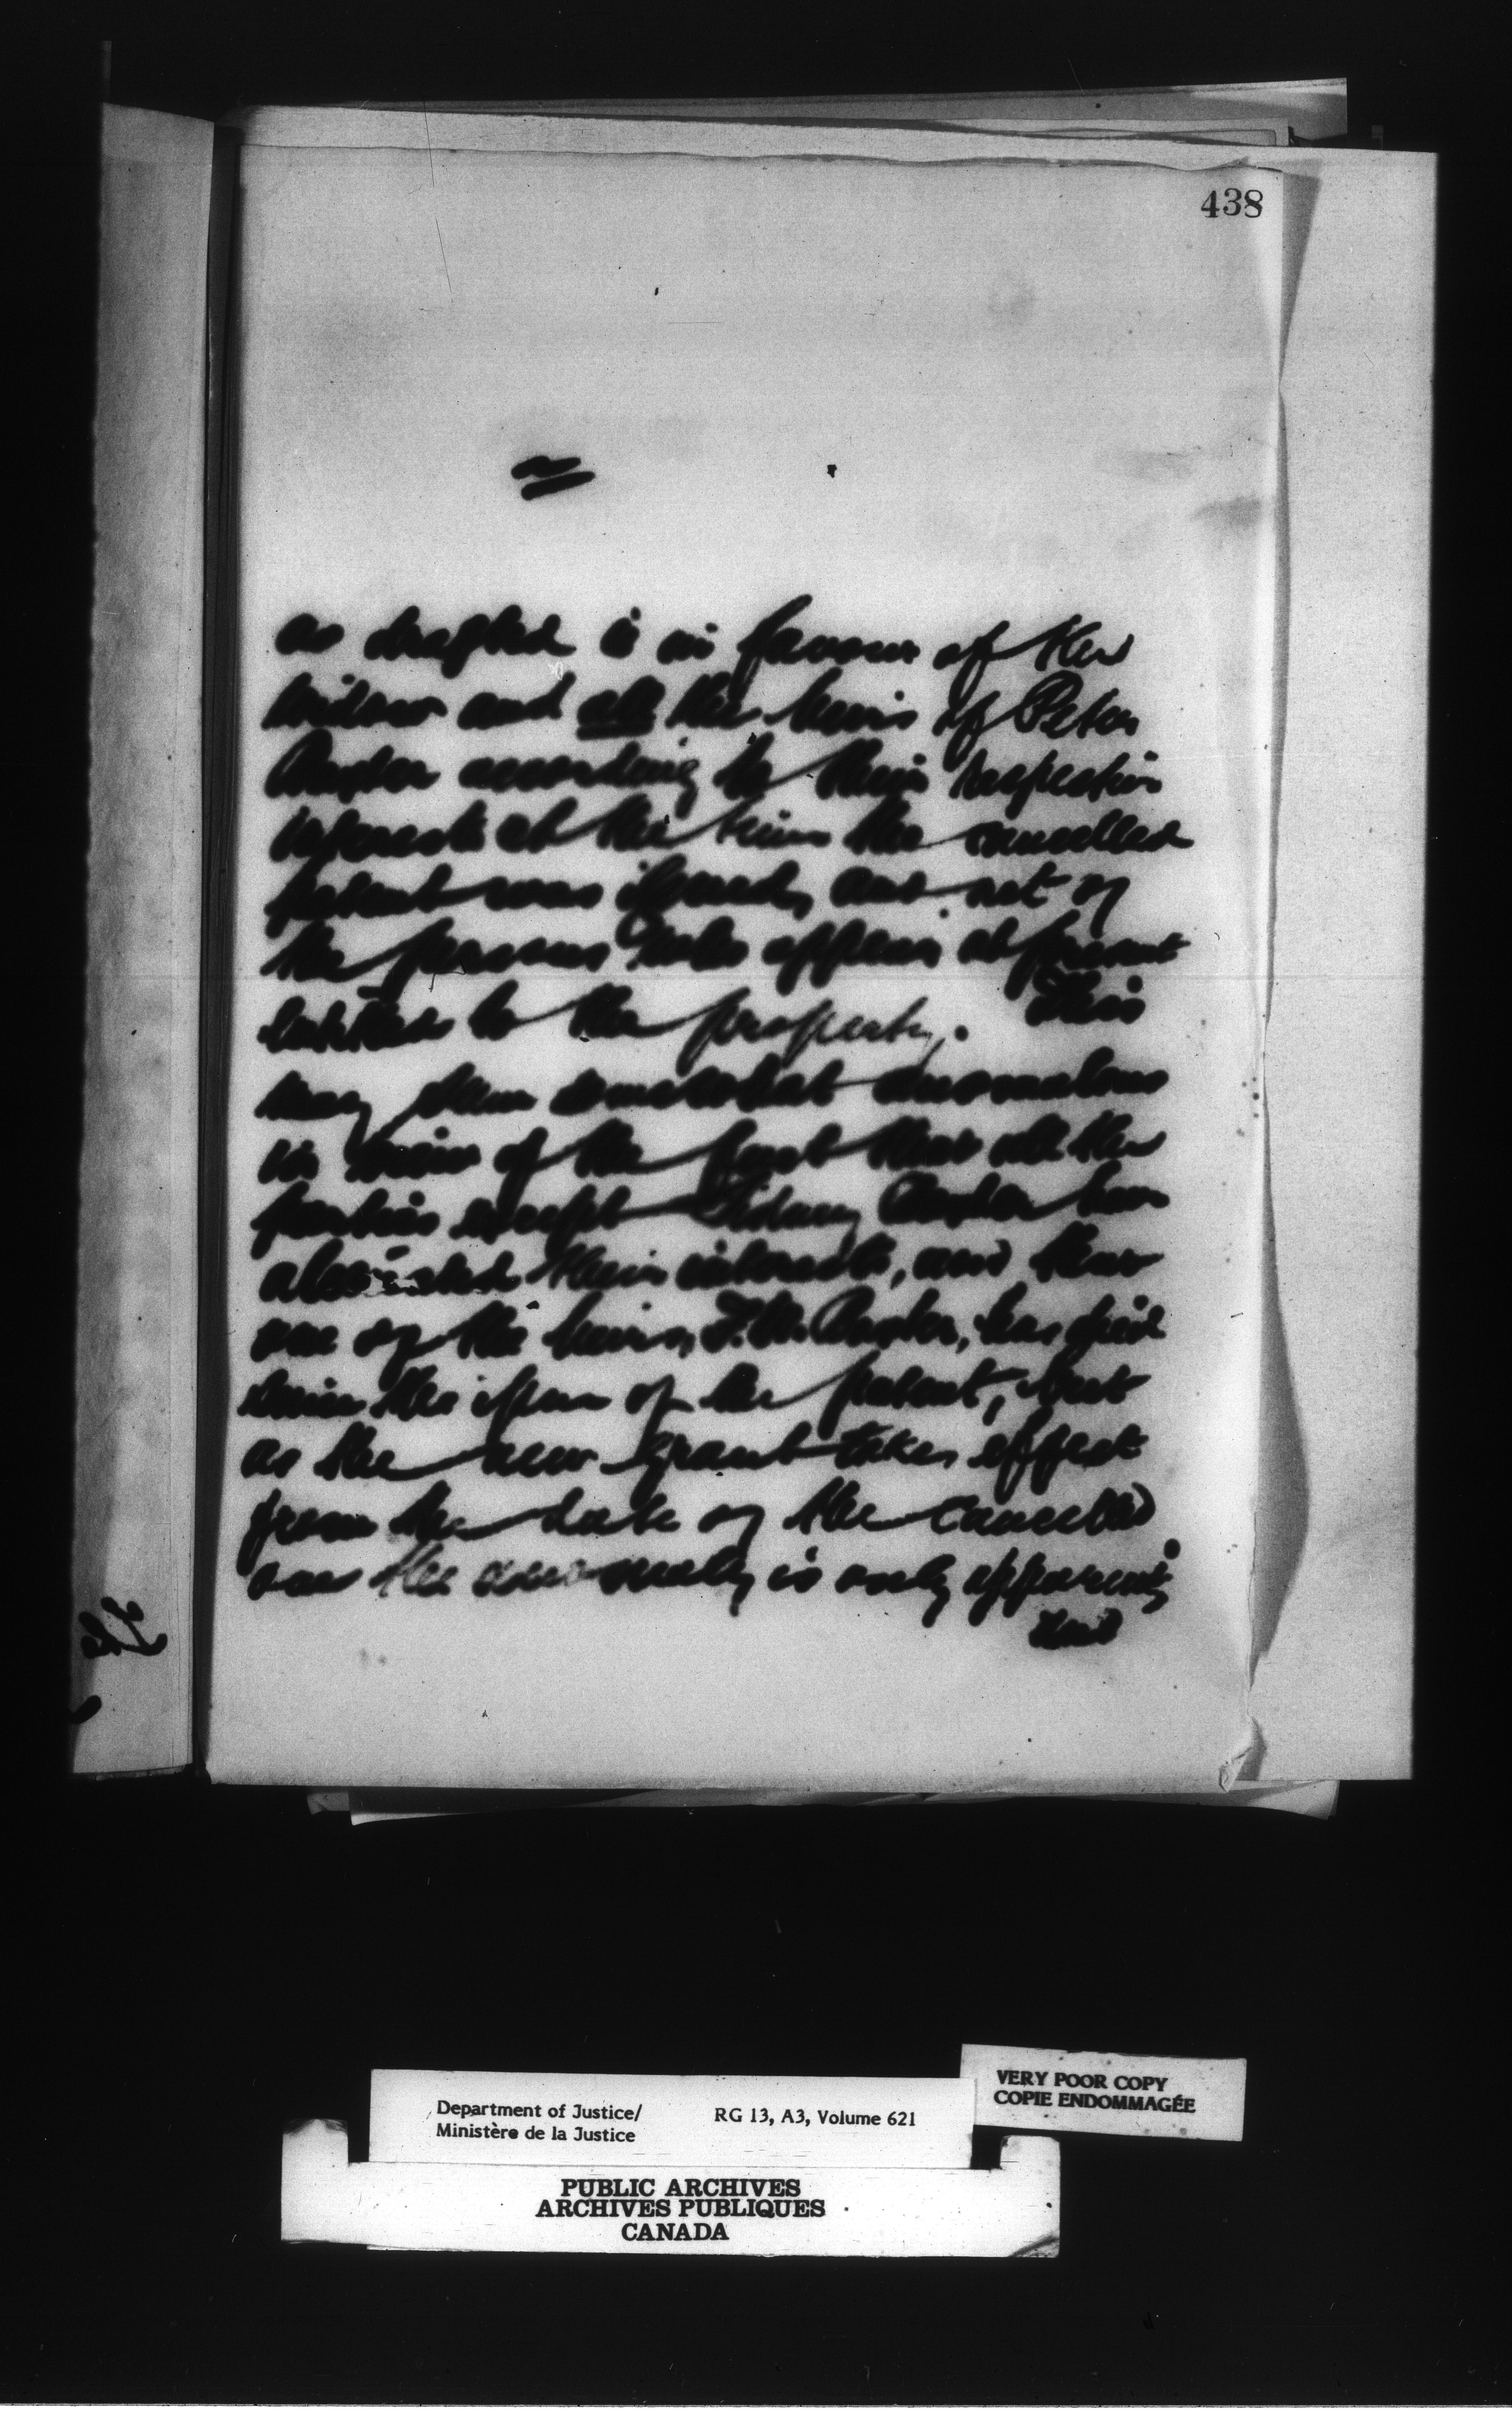 438
as drafted is in favour of the
widow and all the heirs of Peter
according to their respective
interests at the time the cancelled
patent was issued, and not of
the persons who appear at present
entitled to the property. This
may seem somewhat anomalous
in view of the fact that all the
parties except Sidney have
alienated their interests, and that
one of the heirs, has died
since the issue of the patent, but
as the new grant takes effect
from the date of the cancelled
one the anomaly is only apparent,
and
The
Department of Justice/
Ministère de la Justice
RG 13, A3, Volume 621
VERY POOR COPY
COPIE ENDOMMAGÉE
PUBLIC ARCHIVES
ARCHIVES PUBLIQUES
CANADA